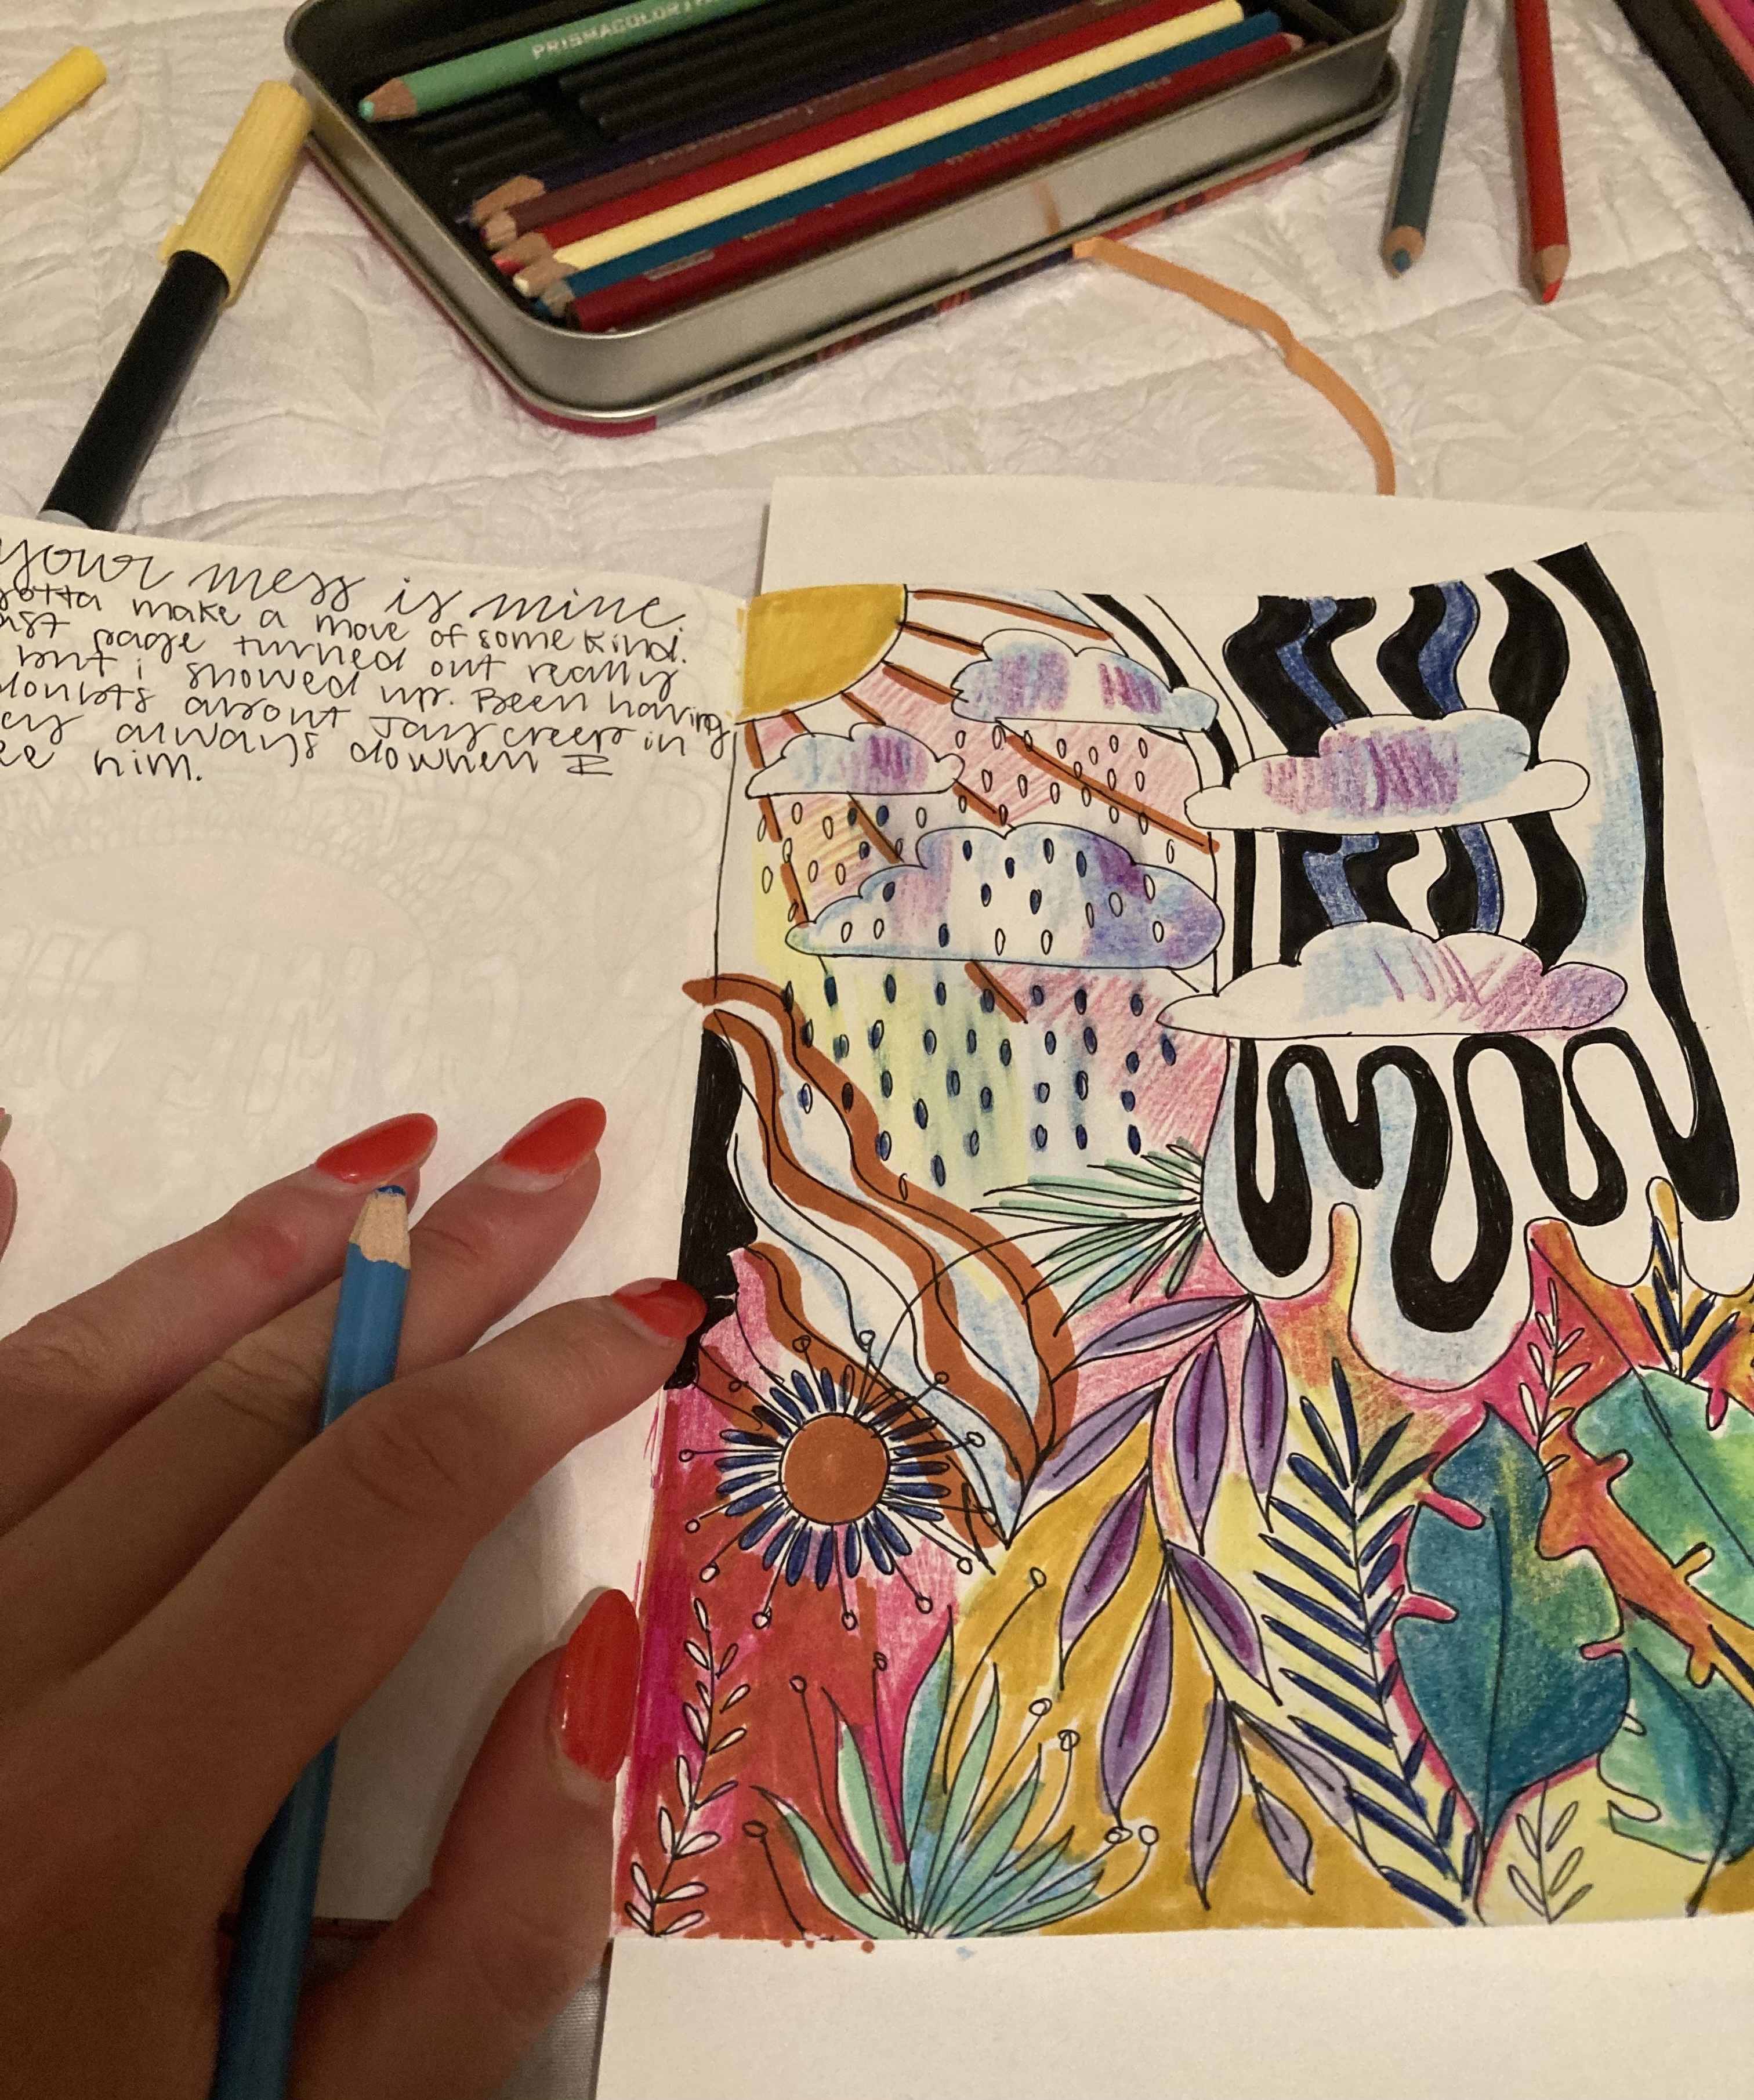 PRISMACOLOR
your mess is mine.
gotta make a move of some kind.
page turned out really
but i showed up. Been having
doubts about Jay creep in
always do when I
him.